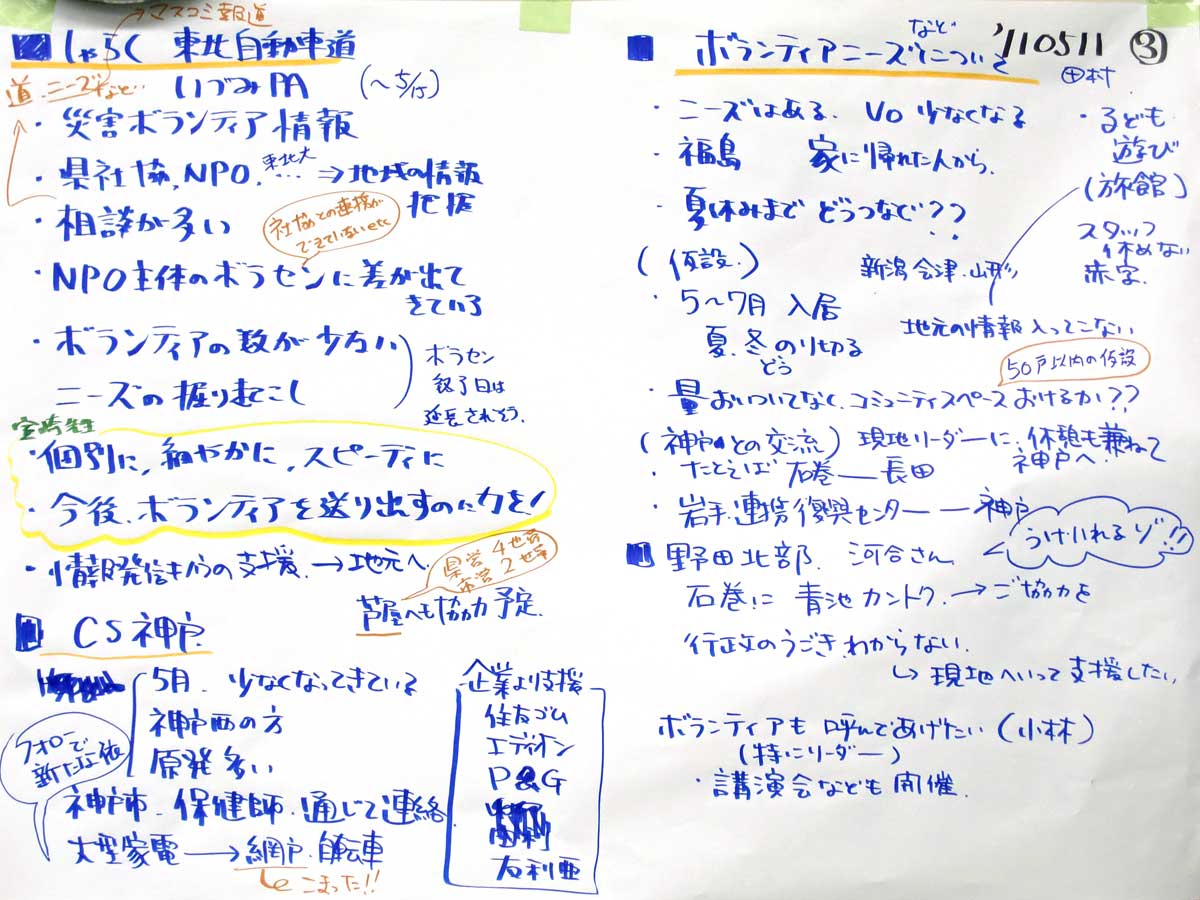 →マスコミ報道
しゃらく 東北自動車道
道.ニーズなど
いづみPA (~5/15)
・災害ボランティア情報
・県社協,NPO.東北大…⇒地域の情報
把握
・相談が多い
社協との連携が
できていないetc
・NPO主体のボラセンに差が出て
きている
・ボランティアの数が少ない
ニーズの掘り起こし
ボラセン
終了日は
延長されそう.
・個別に,細やかに,スピーディに
・今後.ボランティアを送り出すのに力を!
・情報発信からの支援.→地元へ.
県営4世帯
市営2世帯
芦屋へも協力予定.
CS神戸
5月.少なくなってきている
神戸西の方
原発多い
フォローで
新たな依
神戸市.保健師.通じて連絡
大型家電→網戸.自転車
こまった!!
企業より支援
住友ゴム
エディオン
P&G
'110511 ③
田村
ボランティアニーズなどについて
・ニーズはある. Vo少なくなる
・福島 家に帰れた人から.
・夏休みまでどうつなぐ??
・子ども
遊び
(旅館)
スタッフ
休めない
赤字.
(仮設.) 新潟.会津.山形
・5~7月 入居
夏、冬のり切る
どう
地元の情報入ってこない
50戸以内の仮設
・量おいついてなく.コミュニティスペースおけるか??
(神戸との交流) 現地リーダーに.休憩も兼ねて
神戸へ.
・たとえば 石巻―長田
・岩手.連携復興センター―神戸
うけいれるゾ!!
野田北部. 河合さん
石巻に 青池カントク.→ご協力を
行政のうごき.わからない.
↳現地へいって支援したい.
ボランティアも呼んであげたい(小林)
(特にリーダー)
・講演会なども開催.